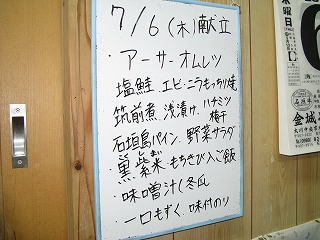 7/6(木)献立
・アーサーオムレツ
塩鮭、エビ・ニラもっちり焼
筑前煮、浅漬け、ハチミツ梅干
石垣島パイン、野菜サラダ
黒紫米 もちきび入ご飯
・味噌汁(冬瓜
・一口もずく、味付のり
木曜日
6
金城